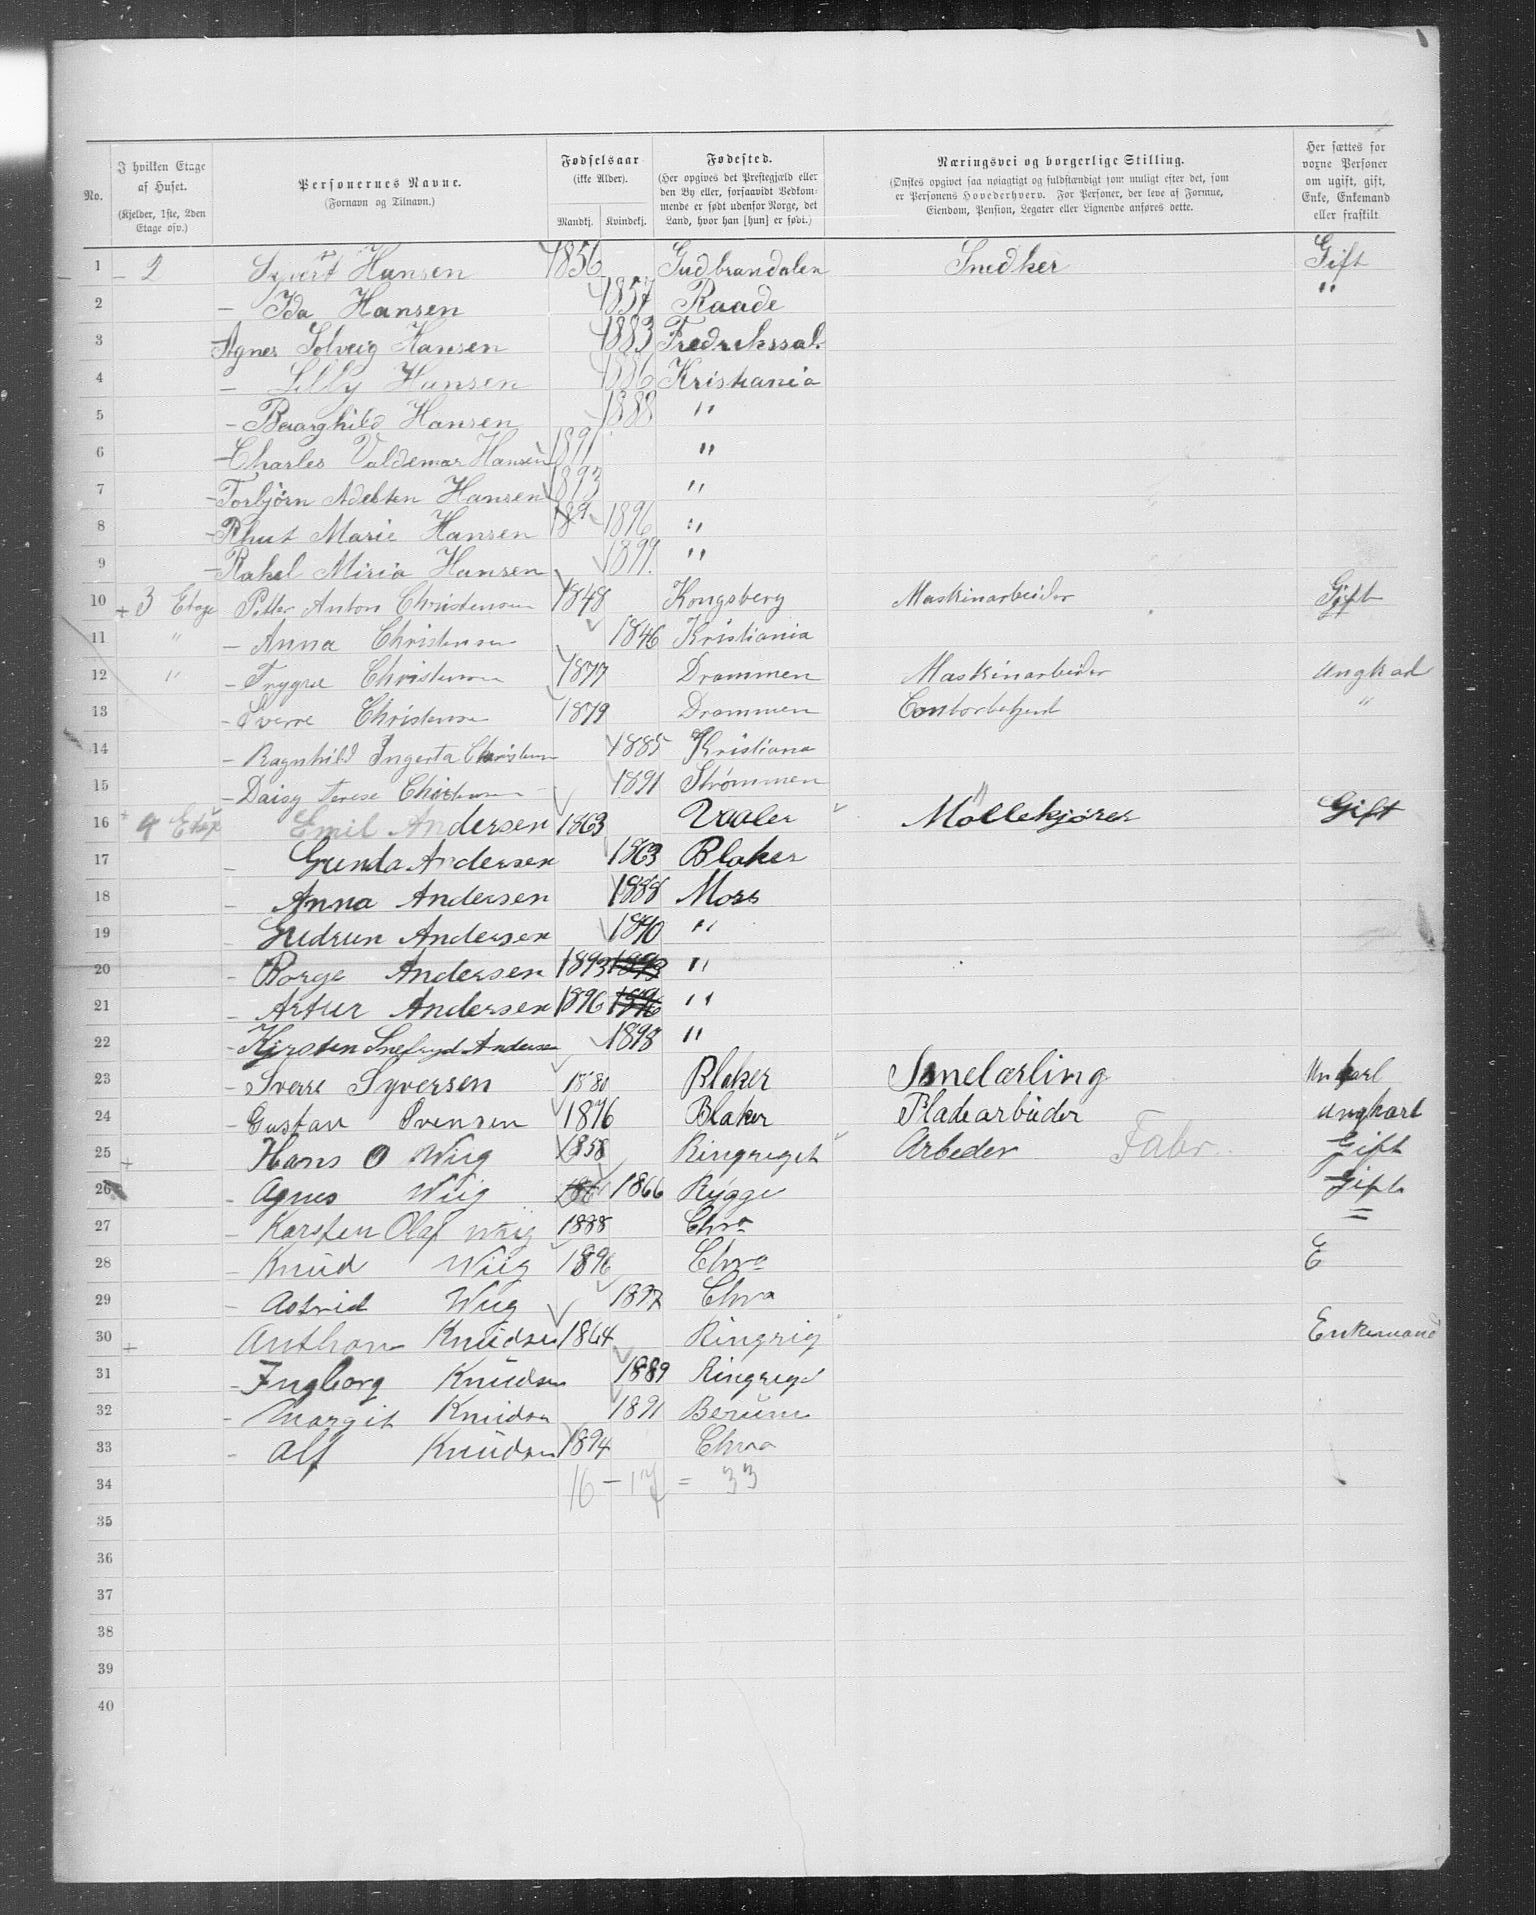 No. | I hvilken Etage af Huset. (Kjelder, 1ste, 2den Etage osv.) | Personernes Navne. (Fornavn og Tilnavn.) | Fødselsaar (ikke Alder). Mandkj. Kvindekj. | Fødested. (Her opgives det Prestegjæld eller den By eller, forsaavidt Vedkommende er født udenfor Norge, det Land, hvor han [hun] er født.) | Næringsvei og borgerlige Stilling. (Ønskes opgivet saa nøiagtigt og fuldstændigt som muligt efter det, som er Personens Hovederhverv. For Personer, der leve af Formue, Eiendom, Pension, Legater eller Lignende anføres dette.) | Her sættes for voxne Personer om ugift, gift, Enke, Enkemand eller fraskilt.
1 – 2 Syvert Hansen 1856 Gudbrandalen Snedker Gift
2 – Ida Hansen 1857 Raade "
3 Agnes Solveig Hansen 1883 Fredrikssal.
4 – Lilly Hansen 1886 Kristiania
5 – Baarghild Hansen 1888 "
6 – Charles Valdemar Hansen 1891 "
7 – Torbjörn Adelsten Hansen 1893 "
8 – Rhut Marie Hansen 189 1896 "
9 – Rakel Miria Hansen 1899. "
10 + 3 Etage Petter Anton Christensen 1848 Kongsberg Maskinarbeider Gift
11 " – Anna Christensen 1846 Kristiania
12 " – Trygve Christensen 1877 Drammen Maskinarbeider Ungkarl
13 – Sverre Christensen 1879 Drammen Contorbetjent "
14 – Ragnhild Ingerta Christensen 1885 Kristiana
15 – Daisy Terese Christensen 1891 Strømmen
16 + 4 Etage Emil Andersen 1863 Vaaler " Möllekjører Gift
17 – Gunda Andersen 1863 Blaker
18 – Anna Andersen 1888 Moss
19 – Gudrun Andersen 1890 "
20 – Borge Andersen 1893 1893 "
21 – Artur Andersen 1896 1896 "
22 – Kirsten Snefryd Andersen 1898 "
23 – Sverre Syversen 1880 Blaker Smelærling Unkarl
24 – Gustav Svensen 1876 Blaker Pladearbüder Ungkarl
25 + Hans O Wiig 1858 Ringreget " Arbeder Fabr. Gift
26 – Agnes Wiig 186 1866 Rygge Gift
27 – Karsten Olaf Wiig 1888 Chra =
28 – Knud Wiig 1896 Chra E
29 – Astrid Wiig 1897 Chra
30 + Anthon Knudsen 1864 Ringrig " Enkemand
31 – Ingborg Knudsen 1889 Ringrige
32 – Margit Knudsen 1891 Berum
33 – Alf Knudsen 1894 Chra
34 16 – 17 = 33
35
36
37
38
39
40